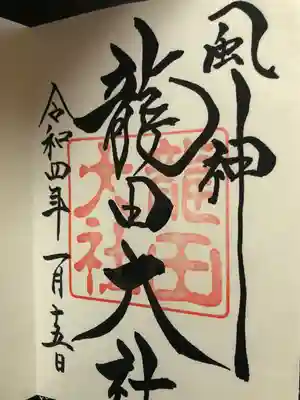 風神
龍田大社
龍田大社
令和四年一月十五日